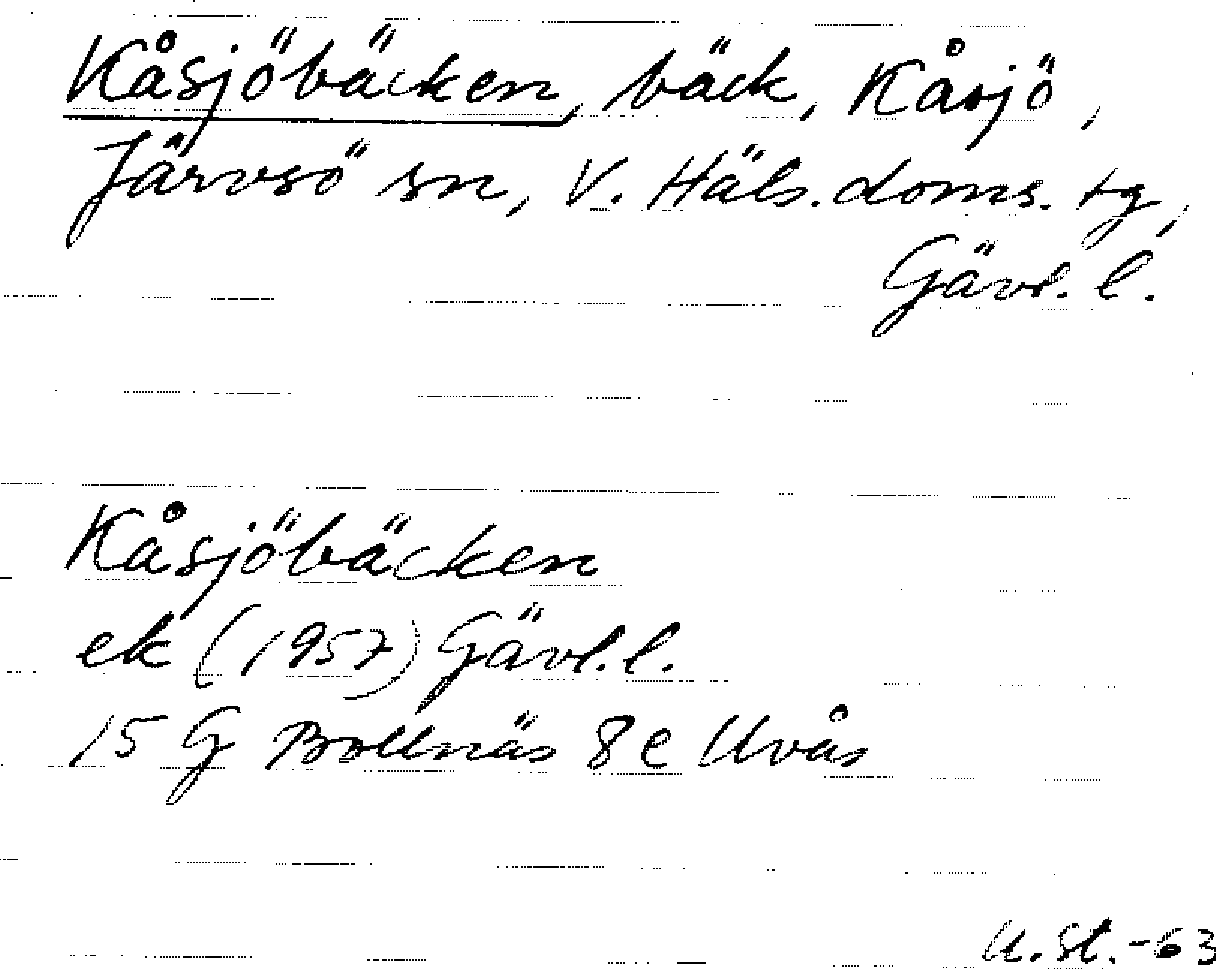 Kåsjöbäcken, bäck, Kåsjö,
Järvsö sn, V. Häls. doms. tg,
Gävl. l.
Kåsjöbäcken
ek (1957) Gävl. l.
15 G Bollnäs 8 e Uvås
U. St. -63